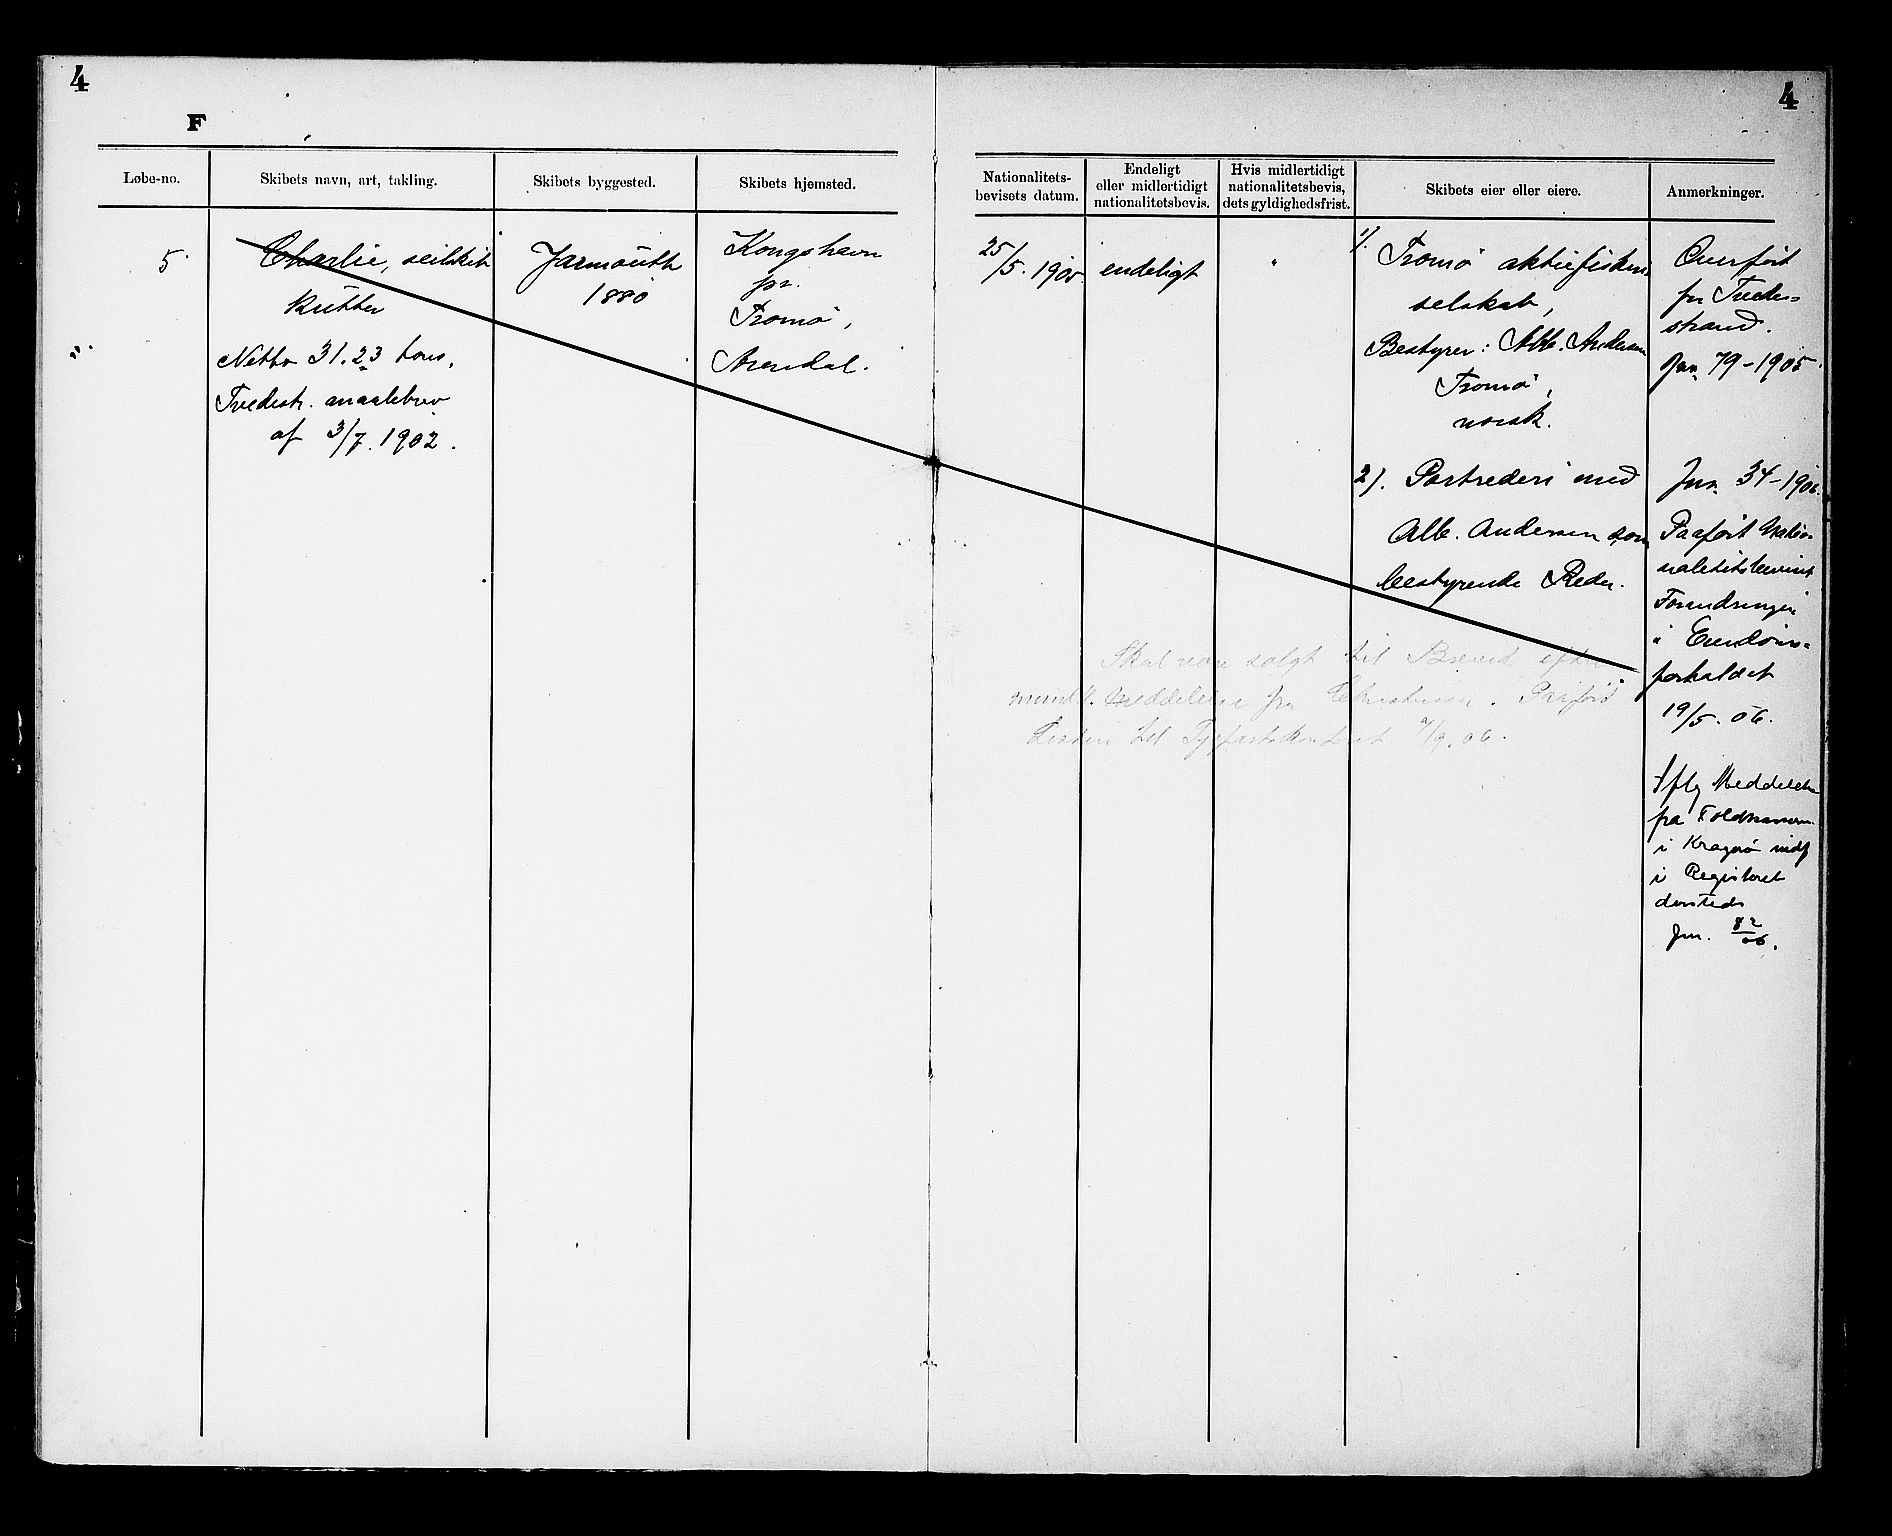 4
F
Løbe-no.
Skibets navn, art, takling.
Skibets byggested.
Skibets hjemsted.
5
Charlie, seilskib
kutter
Netto 31.23 tons,
Tvedestr. maalebrev
af 3/7. 1902.
Jarmouth
1880
Kongshavn
pr.
Tromö,
Arendal.
4
Nationalitets-
bevisets datum.
Endeligt
eller midlertidigt
nationalitetsbevis.
Hvis midlertidigt
nationalitetsbevis,
dets gyldighedsfrist.
Skibets eier eller eiere.
Anmerkninger.
25/5. 1905
endeligt
"
1/. Tromö aktiefiskeri
selskab,
Bestyrer: Alb. Andersen
Tromö,
norsk.
2/. Partrederi med
Alb. Andersen som
bestyrende Reder.
Skal være solgt til Brevik efter
mundtl. Meddelelse fra Christensen. Paaført
Listen til 7/9. 06.
Overført
fra Tvede-
strand.
Jnr. 79-1905.
Jnr. 34-1906.
Paaført Natio-
nalitetsbeviset
Forandringen
i Eiendoms-
forholdet
19/5. 06.
Iflg Meddelelse
fra Toldkammer.
i Kragerø indf
i Registeret
dersteds
Jnr. 82/06.